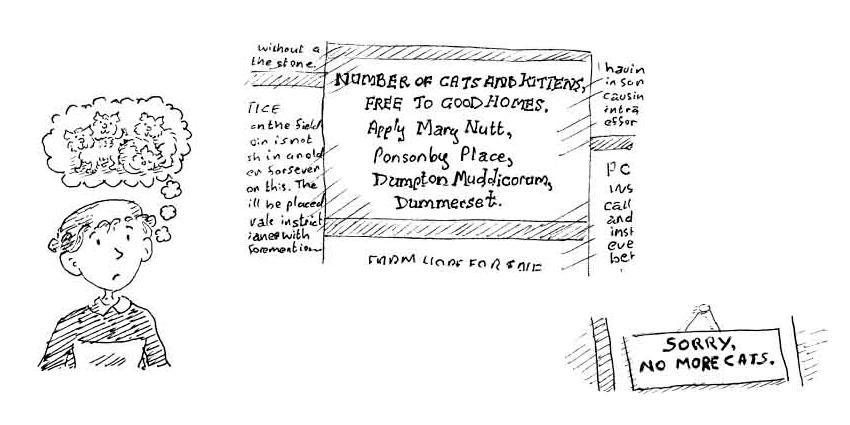 without a
the stone.
TICE
on the field
oin is not
sh in an old
ev forsever
on this. The
ill be placed
vale instrict
iance with
forementione
NUMBER OF CATS AND KITTENS,
FREE TO GOOD HOMES.
Apply Mary Nutt,
Ponsonby Place,
Dumpton Muddicorum,
Dummerset.
FOR SALE
havin
in son
causin
intra
effor
PC
ins
call
and
inst
eve
bet
SORRY,
NO MORE CATS.